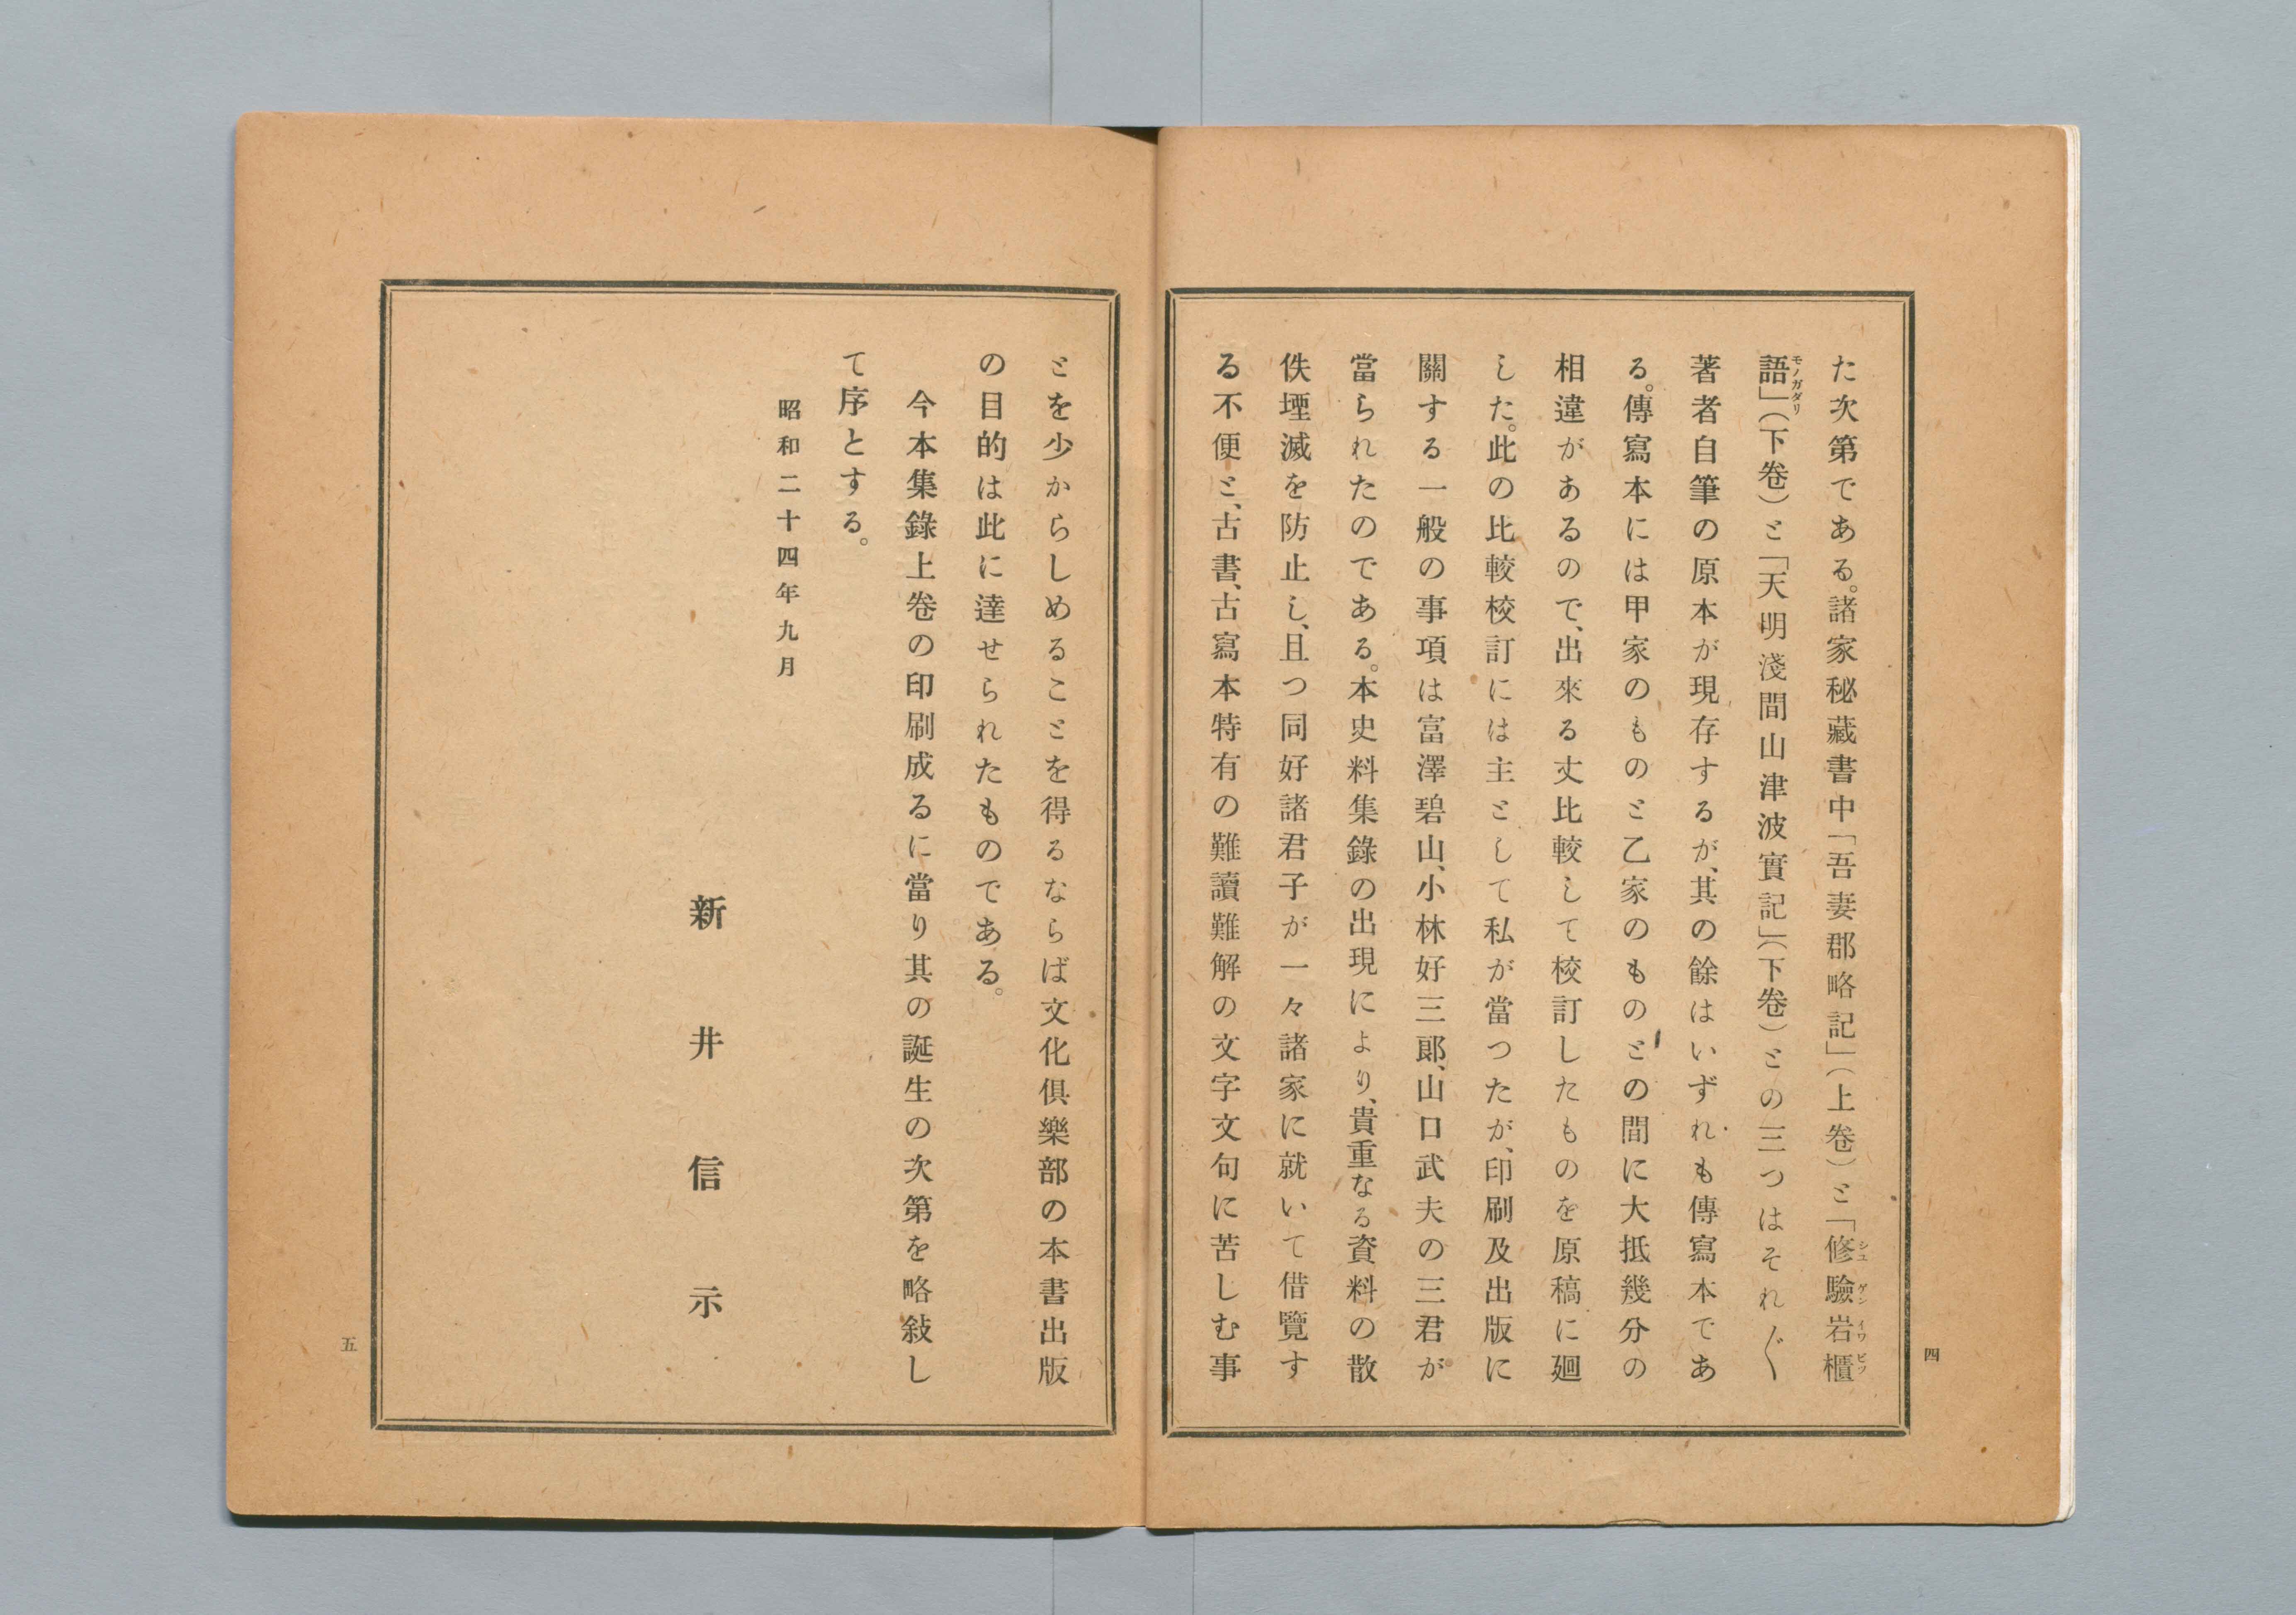 た次第である。諸家秘藏書中「吾妻郡略記」(上卷)と「修驗岩櫃
シユゲンイワビツ
語」(下卷)と「天明淺間山津波實記」(下卷)との三つはそれ〴〵
モノガダリ
著者自筆の原本が現存するが、其の餘はいずれも傳寫本であ
る。傳寫本には甲家のものと乙家のものとの間に大抵幾分の
相違があるので、出來る丈比較して校訂したものを原稿に廻
した。此の比較校訂には主として私が當つたが、印刷及出版に
關する一般の事項は富澤碧山、小林好三郞、山口武夫の三君が
當られたのである。本史料集錄の出現により、貴重なる資料の散
佚堙滅を防止し、且つ同好諸君子が一々諸家に就いて借覽す
る不便と、古書、古寫本特有の難讀難解の文字文句に苦しむ事
四
とを少からしめることを得るならば文化俱樂部の本書出版
の目的は此に達せられたものである。
今本集錄上卷の印刷成るに當り其の誕生の次第を略敍し
て序とする。
昭和二十四年九月
新井信示
五